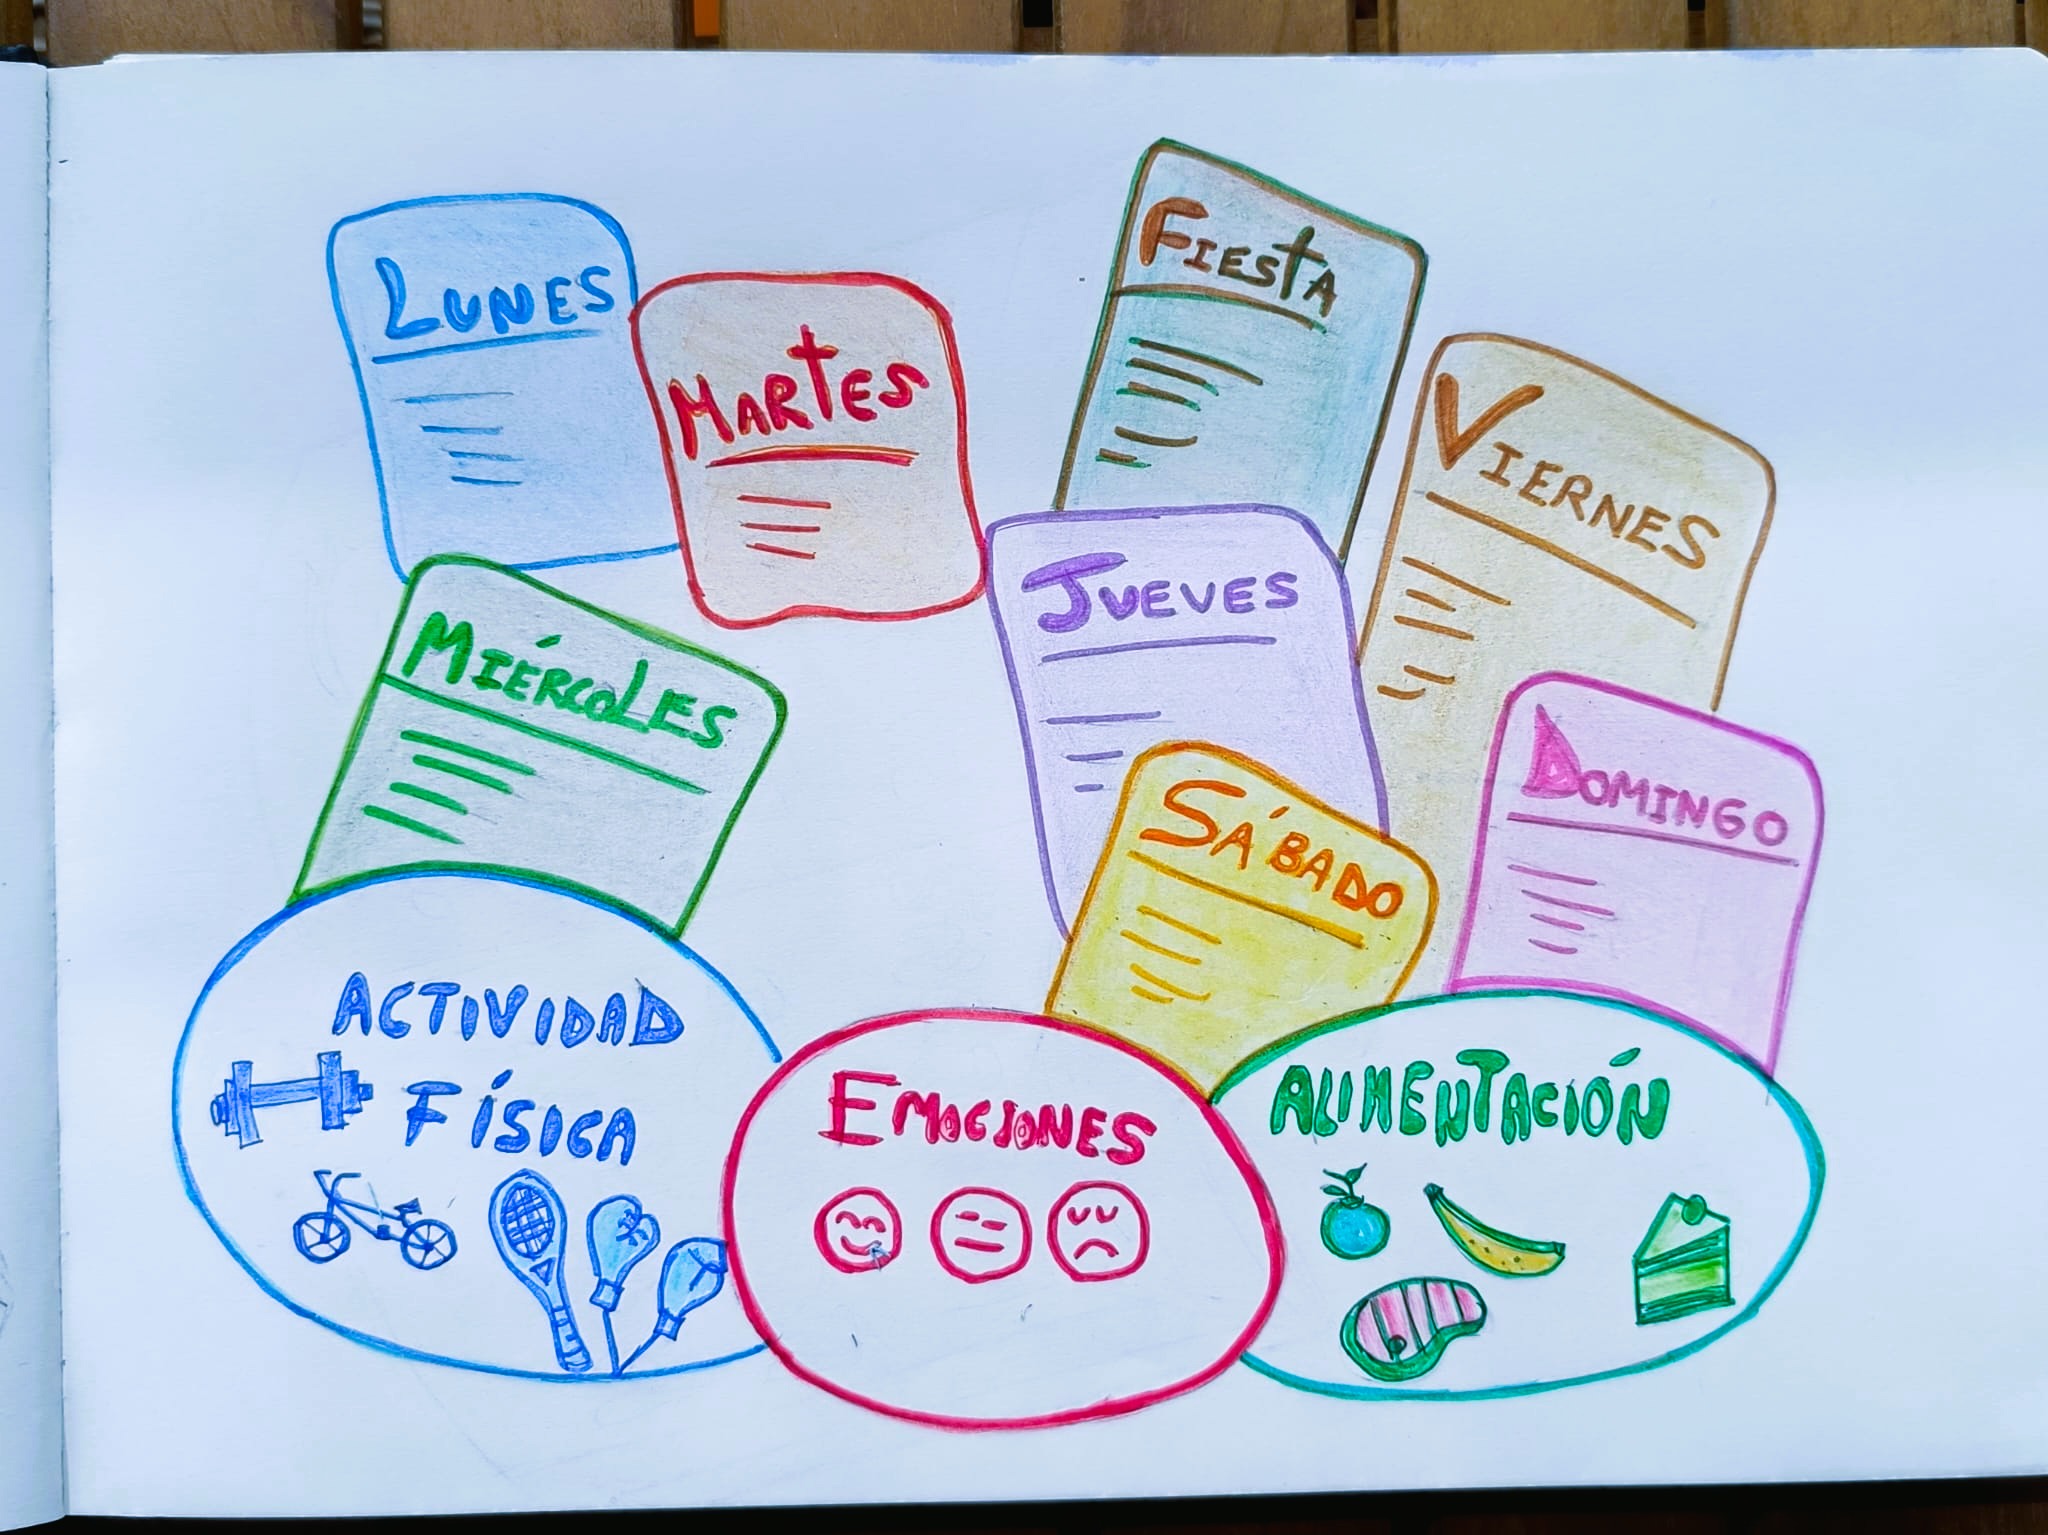 LUNES
MARTES
FIESTA
VIERNES
MIÉRCOLES
JUEVES
SÁBADO
DOMINGO
ACTIVIDAD
FÍSICA
EMOCIONES
ALIMENTACIÓN